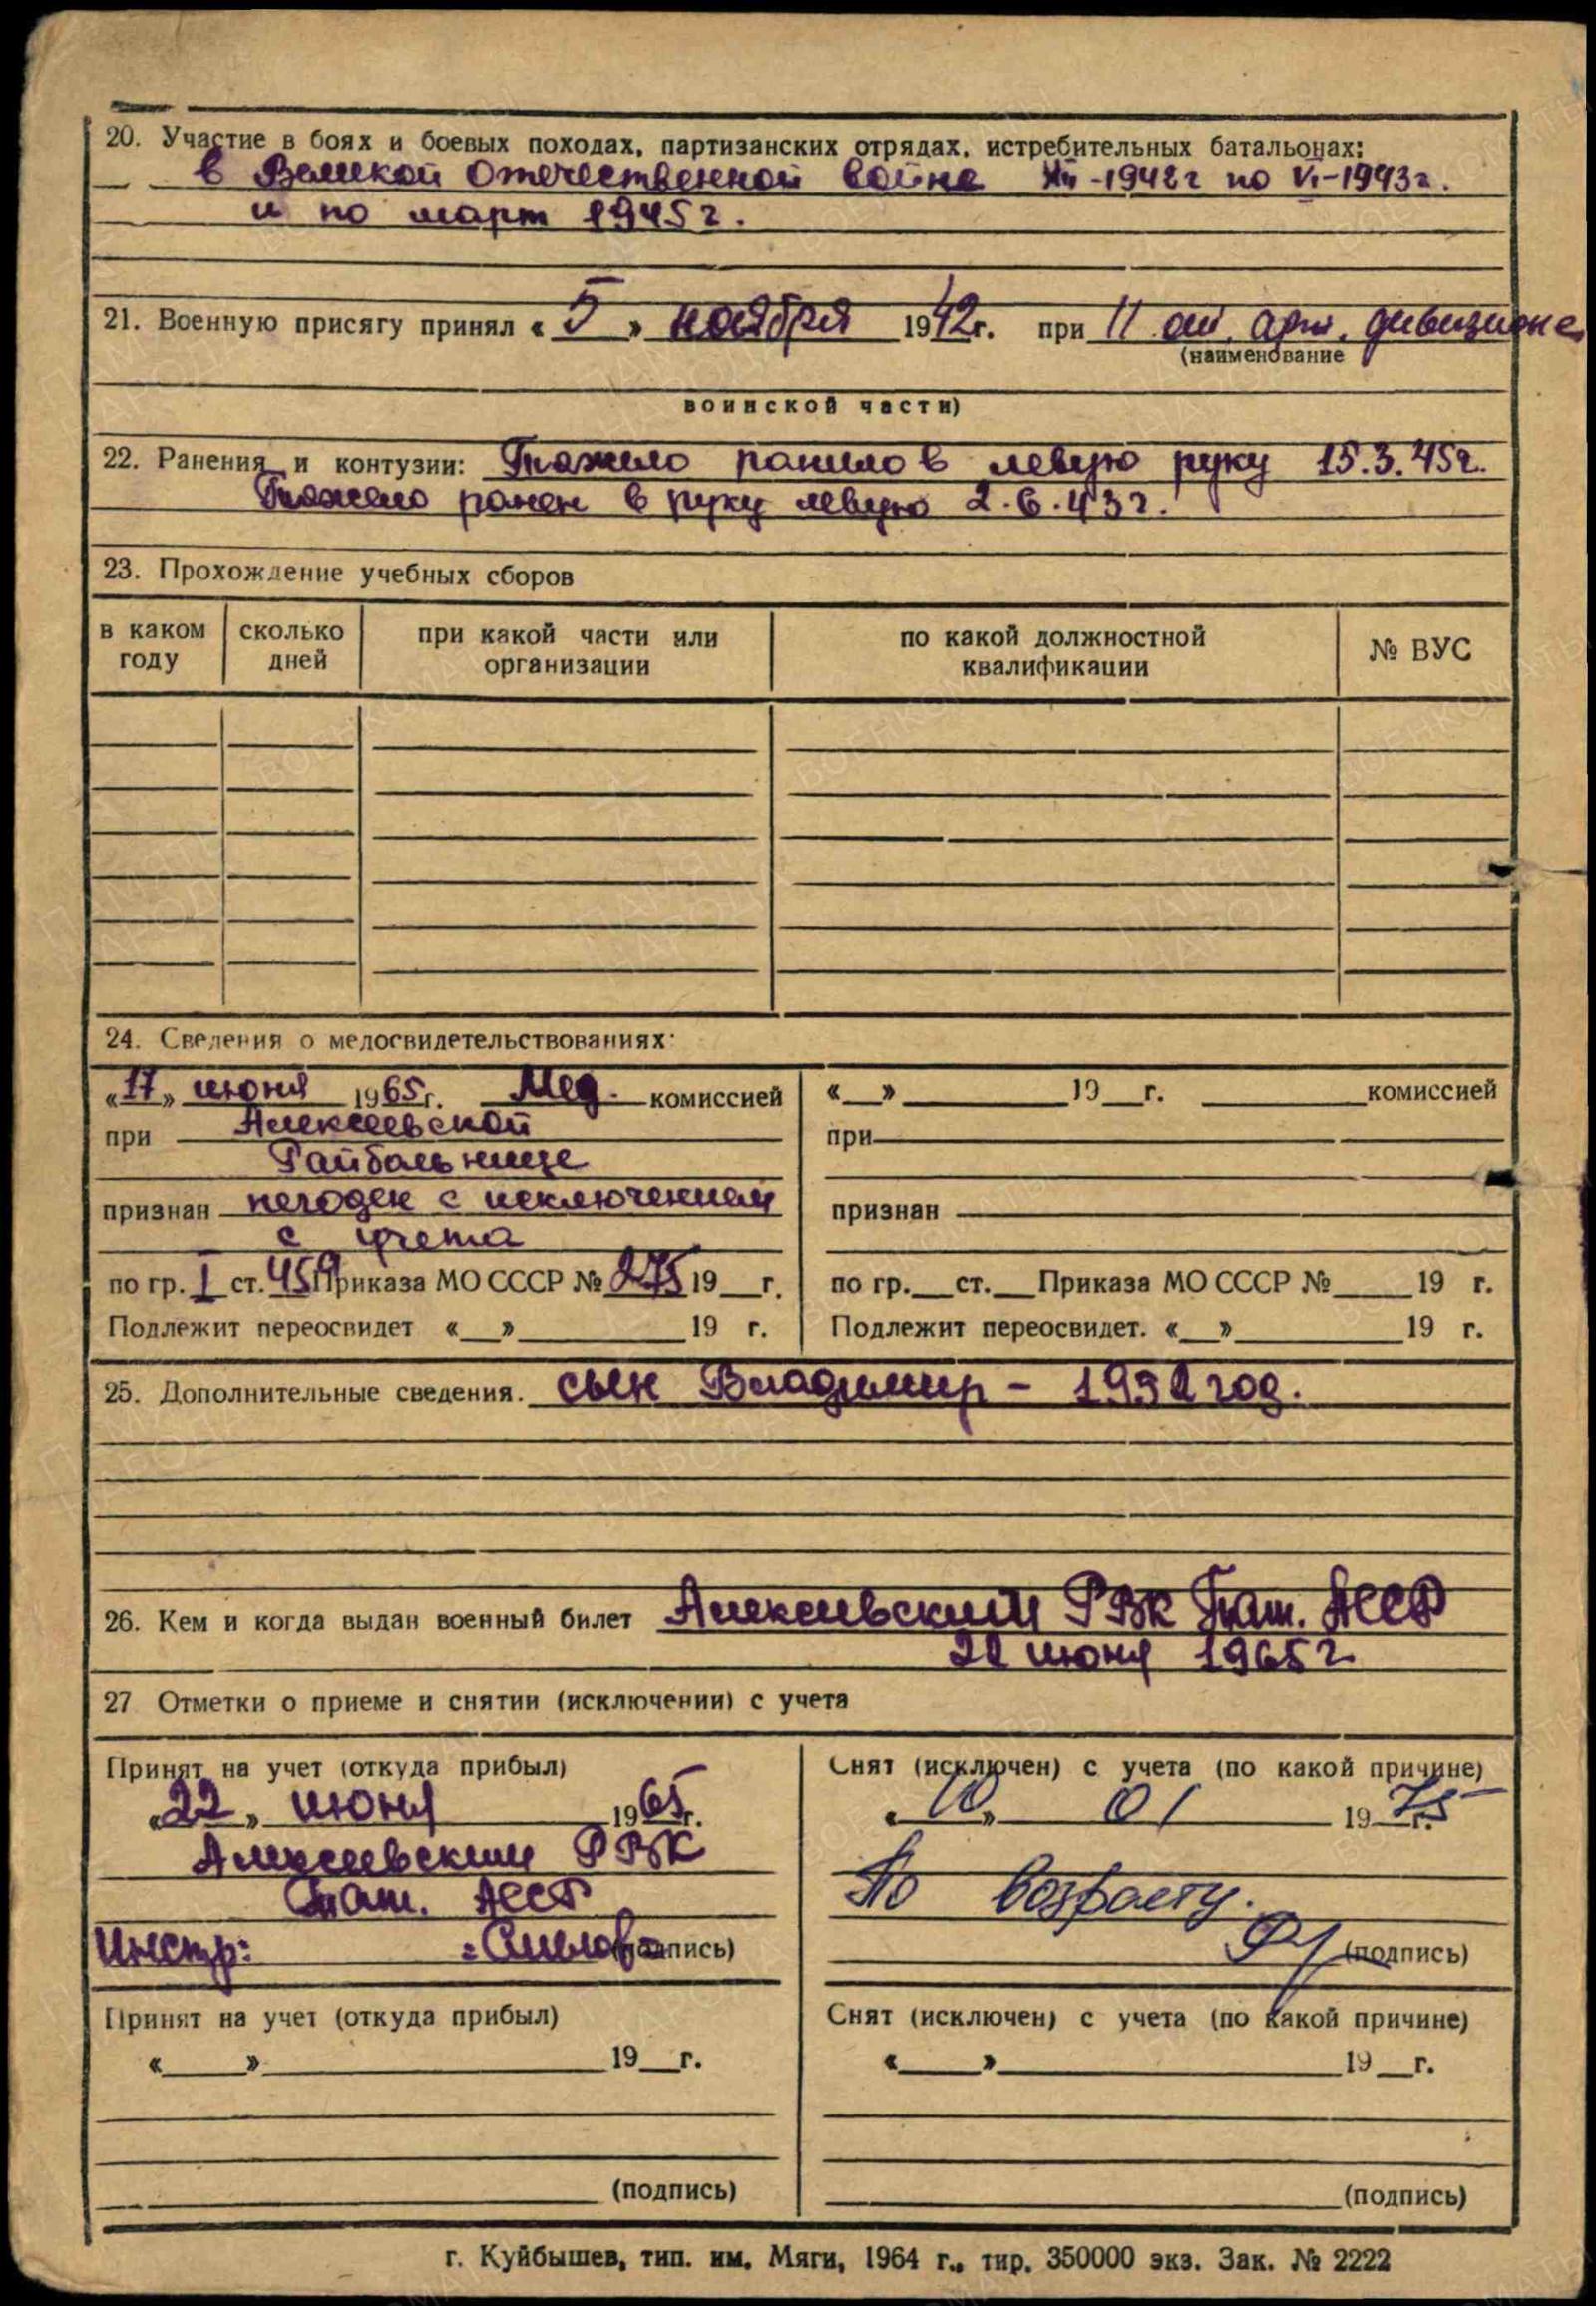 20. Участие в боях и боевых походах, партизанских отрядах, истребительных батальонах:
в Великой Отечественной войне XII-1942 г по VI-1943 г.
и по март 1945 г.
21. Военную присягу принял « 5 » ноября 1942 г. при 11 арт. дивизионе
(наименование
воинской части)
22. Ранения и контузии: Тяжело ранило в левую руку 15.3.45 г.
Тяжело ранен в руку левую 2.6.43 г.
23. Прохождение учебных сборов
в каком году | сколько дней | при какой части или организации | по какой должностной квалификации | № ВУС
24. Сведения о медосвидетельствованиях:
«17» июня 1965 г. Мед. комиссией
при Алексеевской
Райбольнице
признан негоден с исключением
с учета
по гр. I ст. 45а Приказа МО СССР № 275 19__г.
Подлежит переосвидет «__»________19 г.
«__»________19__г. ________комиссией
при
признан
по гр.__ст.__Приказа МО СССР №____19 г.
Подлежит переосвидет. «__»________19 г.
25. Дополнительные сведения. сын Владимир - 1932 год.
26. Кем и когда выдан военный билет Алексеевский РВК Тат. АССР
22 июня 1965 г
27 Отметки о приеме и снятии (исключении) с учета
Принят на учет (откуда прибыл)
«22» июня 1965 г.
Алексеевским РВК
Тат. АССР
Инстр: (подпись)
Снят (исключен) с учета (по какой причине)
« 10 » 01 1975 г.
По возрасту.
(подпись)
Принят на учет (откуда прибыл)
«____»________19__г.
(подпись)
Снят (исключен) с учета (по какой причине)
«____»________19__г.
(подпись)
г. Куйбышев, тип. им. Мяги, 1964 г., тир. 350000 экз. Зак. № 2222